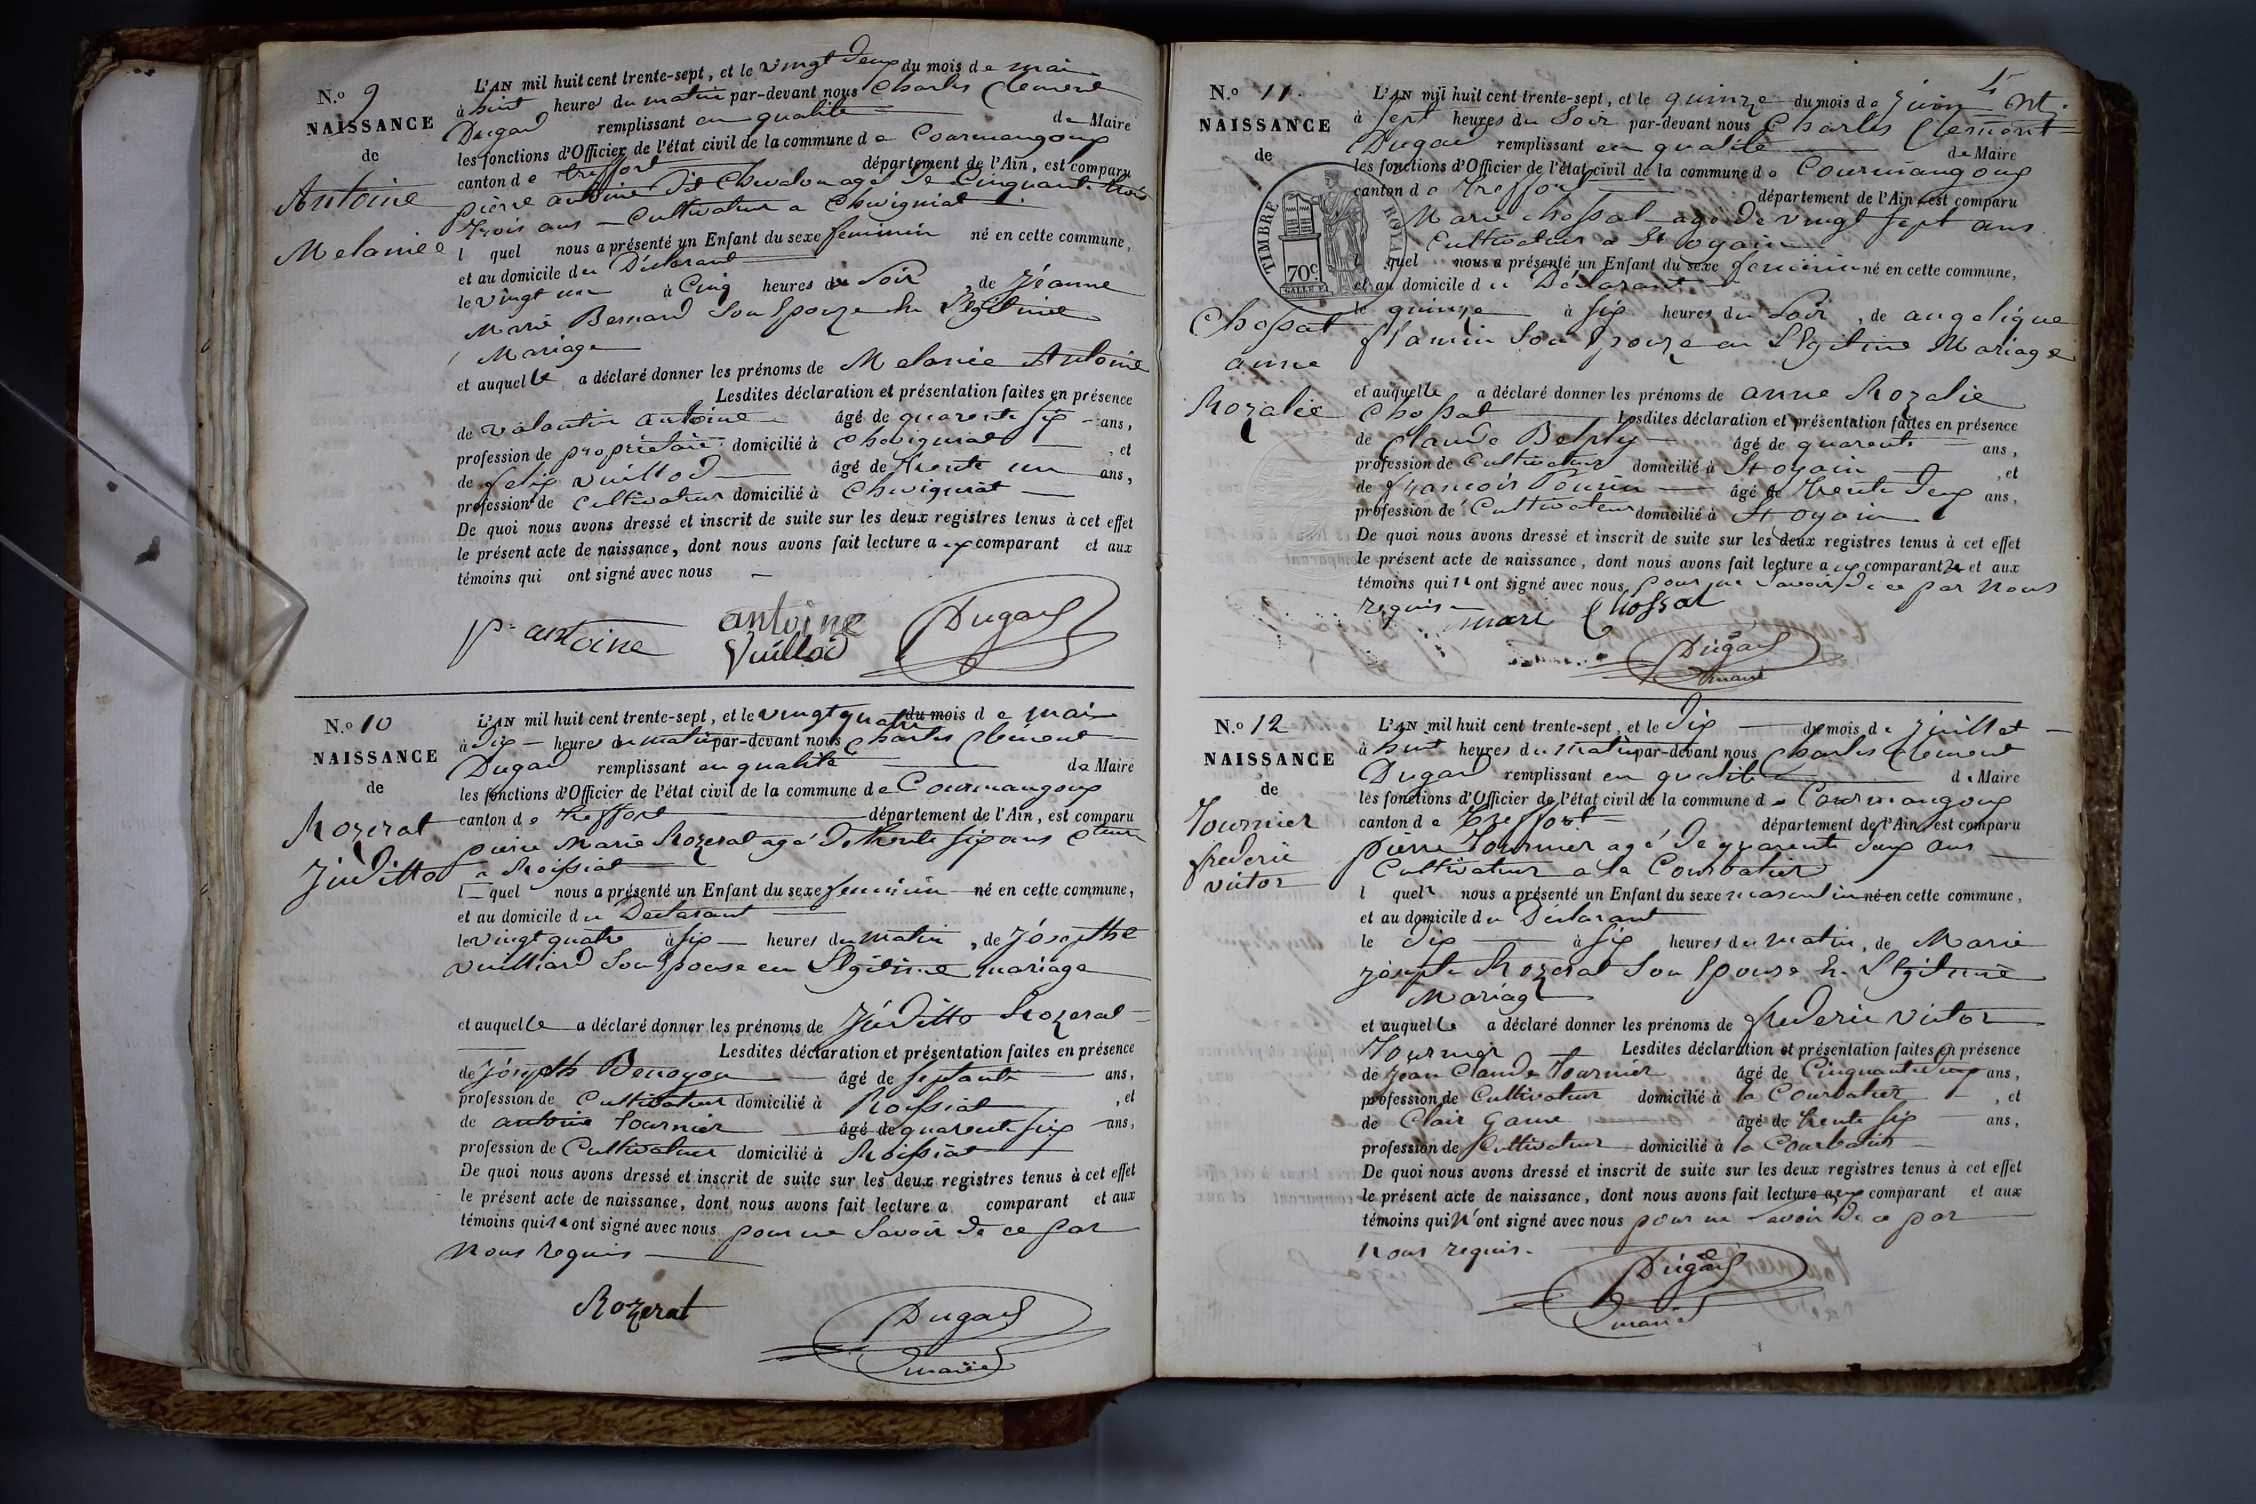 N.o 9
NAISSANCE
de
Antoine
Melaniée
L'AN mil huit cent trente-sept, et le vingt deux du mois de mai
à huit heures du matin par-devant nous Charles Clement
Dugad remplissant en qualité de Maire
les fonctions d'Officier de l'état civil de la commune de Courmangoux
canton de treffort département de l'Ain, est comparu
pierre antoine dit Chevalon agé de Cinquante trois
trois ans cultivateur a Chevigniat
l quel nous a présenté un Enfant du sexe feminin né en cette commune,
et au domicile du Déclarant
le vingt un à Cinq heures du Soir, de Jéanne
Marie Bernard Son Epouze en Légitime
Mariage
et auquel le a déclaré donner les prénoms de Melanie Antoine
Lesdites déclaration et présentation faites en présence
de valantin antoine âgé de quarente six ans,
profession de propriétaire domicilié à Chevigniat, et
de felix vuillod âgé de trente un ans,
profession de Cultivateur domicilié à Chevigniat
De quoi nous avons dressé et inscrit de suite sur les deux registres tenus à cet effet
le présent acte de naissance, dont nous avons fait lecture a ux comparant et aux
témoins qui ont signé avec nous
p. antoine antoine Dugad
Vuillod
N.o 10
NAISSANCE
de
Rozerat
Juditto
L'AN mil huit cent trente-sept, et le vingt quatre du mois de mai
à Dix heures du matin par-devant nous Charles Clement
Dugad remplissant en qualité de Maire
les fonctions d'Officier de l'état civil de la commune de Courmangoux
canton de treffort département de l'Ain, est comparu
pierre Marie Rozerat agé de trente six ans Cteur
a Roissiat
l quel nous a présenté un Enfant du sexe feminin né en cette commune,
et au domicile du Déclarant
le vingt quatre à six heures du matin, de Joséphte
vuilliard Son Epouse en Légitime mariage
et auquel le a déclaré donner les prénoms de Juditto Rozerat
Lesdites déclaration et présentation faites en présence
de Joseph Benoyou âgé de Septante ans,
profession de Cultivateur domicilié à Roissiat, et
de antoine tournier âgé de quarente six ans,
profession de Cultivateur domicilié à Roissiat
De quoi nous avons dressé et inscrit de suite sur les deux registres tenus à cet effet
le présent acte de naissance, dont nous avons fait lecture a comparant et aux
témoins qui ne ont signé avec nous pour ne Savoir de ce par
Nous requis
Rozerat Dugad
maire
N.o 11.
NAISSANCE
de
TIMBRE ROYAL
70c
Chossat
anne
Rozalie
L'AN mil huit cent trente-sept, et le quinze du mois de juin
à Sept heures du Soir par-devant nous Charles Clement
Dugad remplissant en qualité de Maire
les fonctions d'Officier de l'état civil de la commune de Courmangoux
canton de treffort département de l'Ain, est comparu
Marie Chossat agé de vingt sept ans
Cultivateur a St oyain
l quel nous a présenté un Enfant du sexe feminin né en cette commune,
et au domicile du Déclarant
le quinze à six heures du Soir, de angelique
flamin Son Epouze en Légitime Mariage
et auquel le a déclaré donner les prénoms de anne Rozalie
Chossat Lesdites déclaration et présentation faites en présence
de Claude âgé de quarente ans,
profession de Cultivateur domicilié à St oyain, et
de francois âgé de trente deux ans,
profession de Cultivateur domicilié à St oyain
De quoi nous avons dressé et inscrit de suite sur les deux registres tenus à cet effet
le présent acte de naissance, dont nous avons fait lecture a ux comparant et aux
témoins qui ne ont signé avec nous pour ne Savoir de ce par Nous
requis
mari Chossat
Dugad
maire
N.o 12
NAISSANCE
de
Tournier
frederic
victor
L'AN mil huit cent trente-sept, et le Dix du mois de juillet
à huit heures du matin par-devant nous Charles Clement
Dugad remplissant en qualité de Maire
les fonctions d'Officier de l'état civil de la commune de Courmangoux
canton de treffort département de l'Ain, est comparu
pierre Tournier agé de quarente deux ans
Cultivateur a la Courbatier
l quel nous a présenté un Enfant du sexe masculin né en cette commune,
et au domicile du Déclarant
le Dix à Six heures du matin, de Marie
joséphte Rozerat Son Epouse en Légitime
Mariage
et auquel le a déclaré donner les prénoms de frederic victor
Tournier Lesdites déclaration et présentation faites en présence
de Jean Claude tournier âgé de Cinquante deux ans,
profession de Cultivateur domicilié à la Courbatier, et
de Clair âgé de trente six ans,
profession de Cultivateur domicilié à la Courbatier
De quoi nous avons dressé et inscrit de suite sur les deux registres tenus à cet effet
le présent acte de naissance, dont nous avons fait lecture aux comparant et aux
témoins qui n'ont signé avec nous pour ne Savoir de ce par
Nous requis.
Dugad
maire